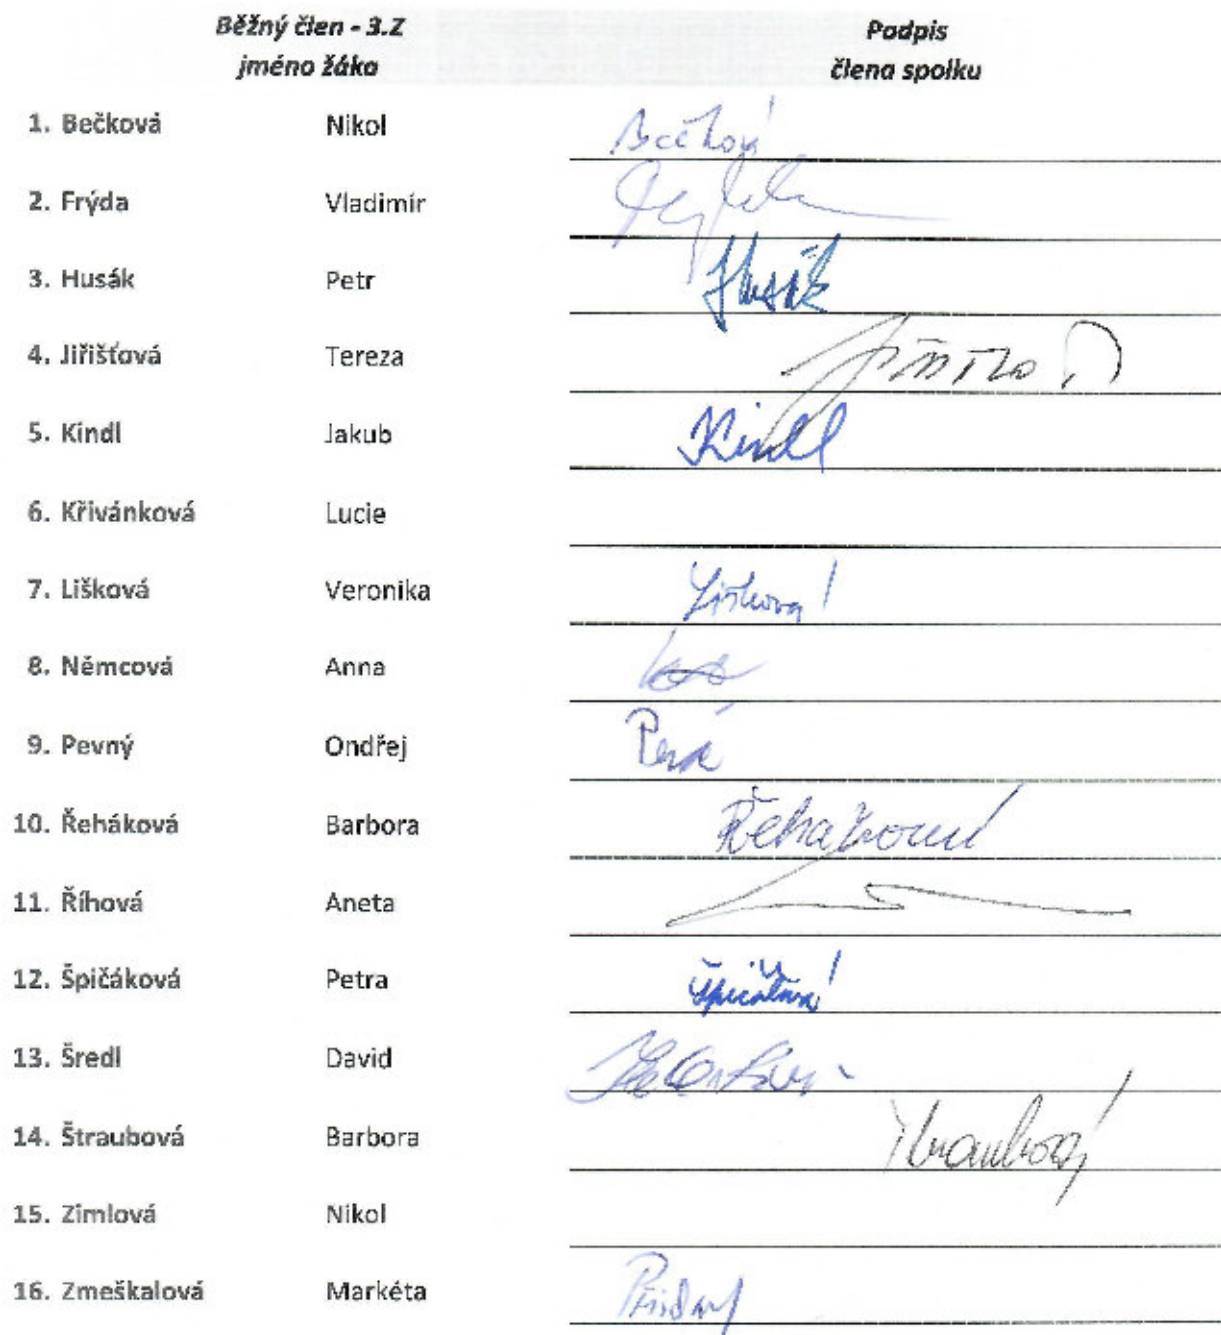 Běžný člen - 3.Z
jméno žáka
Podpis
člena spolku
1. Bečková Nikol
2. Frýda Vladimír
3. Husák Petr Husák
4. Jiřišťová Tereza
5. Kindl Jakub Kindl
6. Křivánková Lucie
7. Lišková Veronika Lišková
8. Němcová Anna
9. Pevný Ondřej
10. Řeháková Barbora Řeháková
11. Říhová Aneta
12. Špičáková Petra
13. Šredl David
14. Štraubová Barbora
15. Zimlová Nikol
16. Zmeškalová Markéta